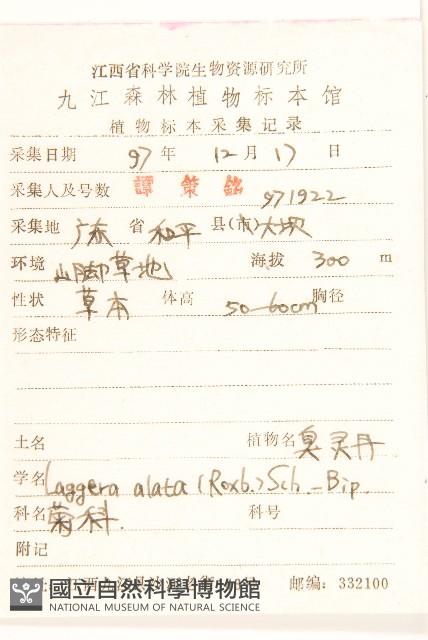 江西省科学院生物资源研究所
九江森林植物标本馆
植物标本采集记录
采集日期 97 年 12 月 17 日
采集人及号数 譚策銘 971922
采集地 广东 省 和平 县(市) 大坝
环境 山脚草地 海拔 300 m
性状 草本 体高 50-60cm 胸径
形态特征
土名 植物名 臭灵丹
学名 Laggera alata (Roxb.) Sch.-Bip.
科名 菊科. 科号
附记
江西九江县 邮编: 332100
國立自然科學博物館
NATIONAL MUSEUM OF NATURAL SCIENCE